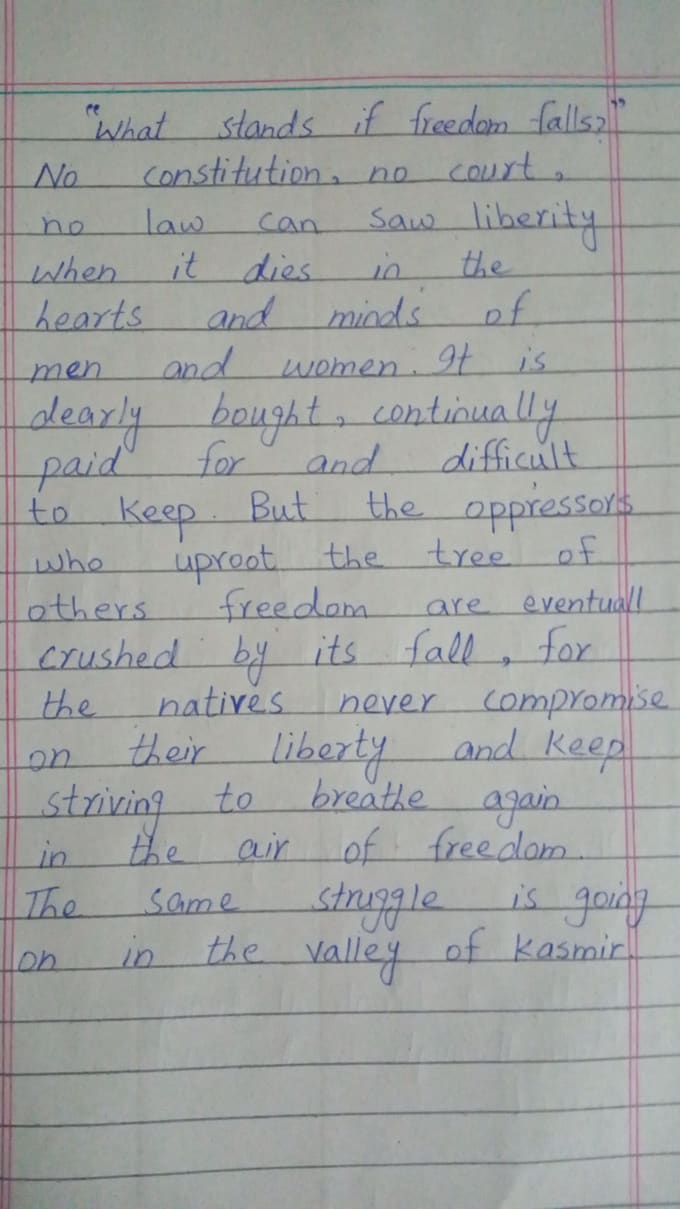 "What stands if freedom falls?"
No constitution, no court,
no law can saw liberity
when it dies in the
hearts and minds of
men and women. It is
dearly bought, continually
paid for and difficult
to keep. But the oppressors
who uproot the tree of
others freedom are eventuall
crushed by its fall, for
the natives never compromise
on their liberty and keep
striving to breathe again
in the air of freedom.
The same struggle is going
on in the valley of Kasmir.